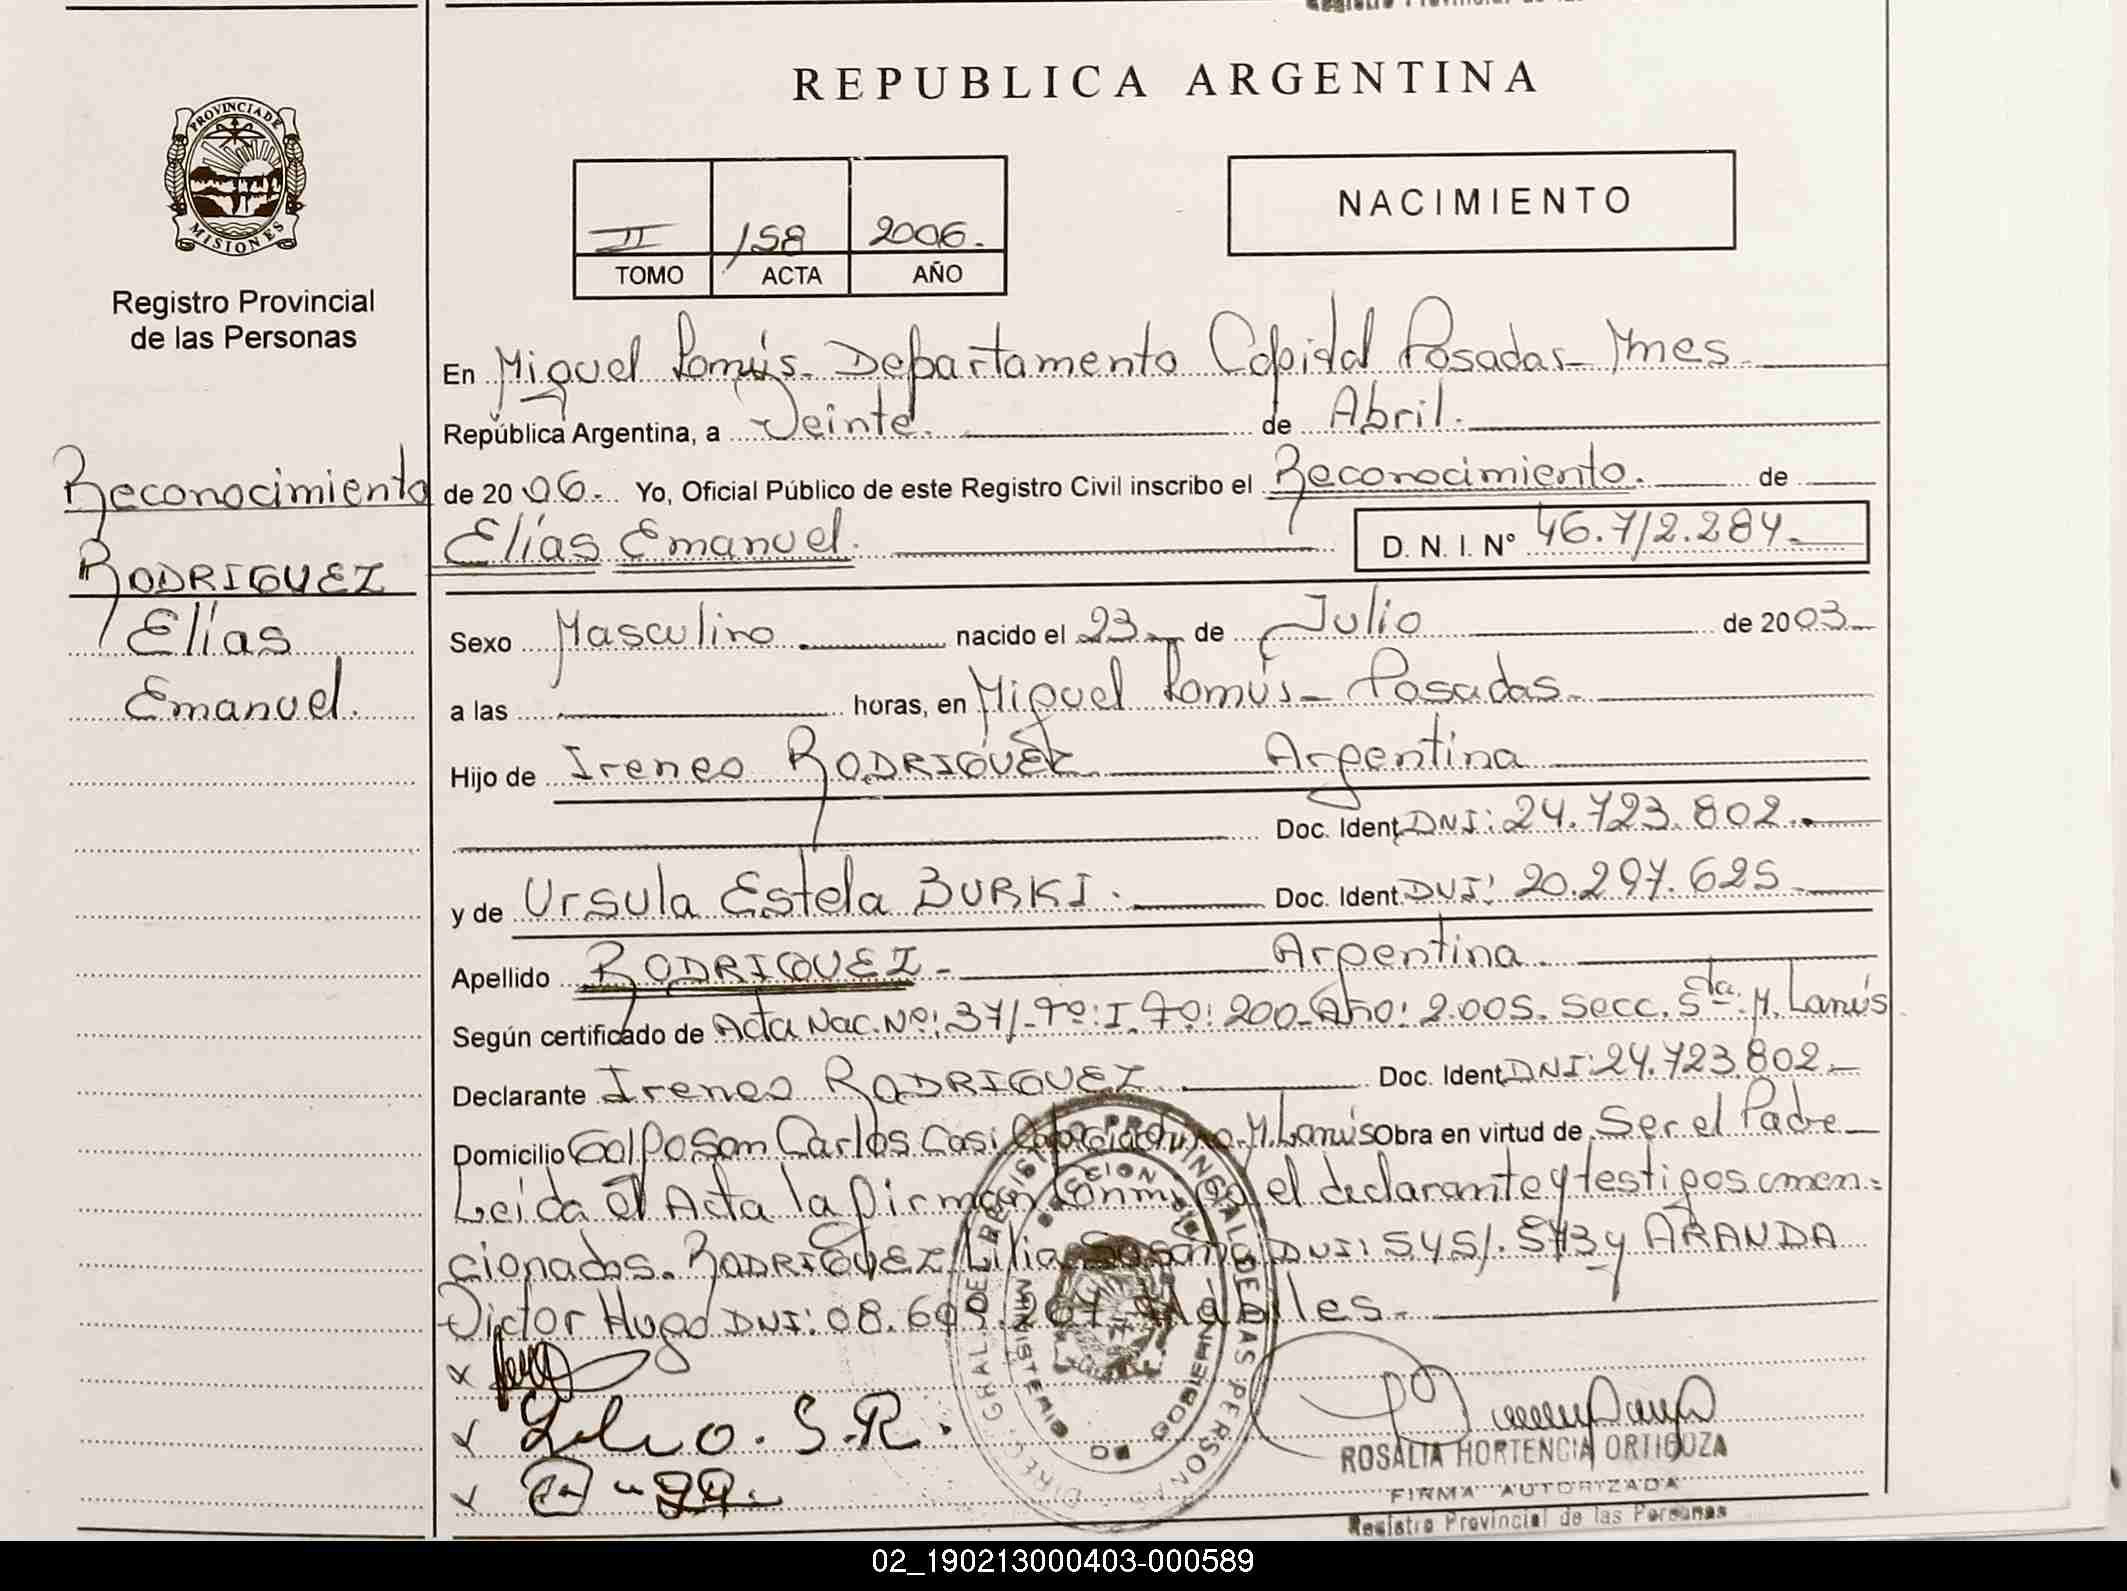 REPUBLICA ARGENTINA
PROVINCIA DE
MISIONES
Registro Provincial
de las Personas
NACIMIENTO
II 158 2006.
TOMO ACTA AÑO
En Miguel Lanús - Departamento Capital Posadas - Mnes
República Argentina, a Veinte. de Abril.
de 20 06.- Yo, Oficial Público de este Registro Civil inscribo el Reconocimiento. de
Elías Emanuel. D. N. I. Nº 46.712.284.-
Reconocimiento
RODRIGUEZ
Elías
Emanuel.
Sexo Masculino nacido el 23 de Julio de 2003
a las horas, en Miguel Lanús - Posadas.
Hijo de Ireneo RODRIGUEZ Argentina
Doc. Ident. DNI: 24.723.802.
y de Ursula Estela BURKI. Doc. Ident. DNI: 20.297.625
Apellido RODRIGUEZ - Argentina.
Según certificado de Acta Nac. Nº: 371.- Tº: I. Fº: 200 - Año: 2.005. Secc. 5ta. M. Lanús
Declarante Ireneo RODRIGUEZ Doc. Ident. DNI: 24.723.802.-
Domicilio Golpo San Carlos Casi M. Lanús Obra en virtud de Ser el Padre
Leida el Acta la firman conmigo el declarante y testigos amen=
cionados. RODRIGUEZ Lilia Susana DNI: 5451.573 y ARANDA
Victor Hugo DNI: 08. Habiles.-
x
x S.R.
x
ROSALIA HORTENCIA ORTIGOZA
FIRMA AUTORIZADA
Registro Provincial de las Personas
02_190213000403-000589